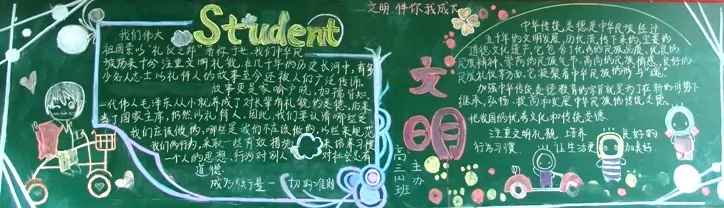 文明 伴你我成大
Student
我们伟大
祖国素以"礼仪之邦"著称于世,我们中华民
族历来十分注重文明礼貌,在几千年的历史长河中,有多
少名人志士以礼待人的故事至今还被人们广泛传诵。
故事更是家喻户晓,妇孺皆知
一代伟人毛泽东从小就养成了对长辈有礼貌的美德,后来
当了国家主席,仍然以礼待人,因此,我们要认清哪些是
我们应该做的,哪些是我们不应该做的,
我们的行为,采取一些有效措施 来培养习惯
一个人的思想、行为对别人 对社会是有
道德
成为一切的准则
文明
高三四班
主办
中华传统美德是中华民族经过
五千年的文明发展,历代流传下来的宝贵的
道德文化遗产,它包含了优秀的民族品质,优良的
民族精神,崇高的民族气节,高尚的民族情感,良好的
民族礼仪等方面,它凝聚着中华民族的形与"魂"
加强中华传统美德教育的宗旨就是为了在新的形势下
继承,弘扬,提高和发展中华民族的传统美德。
把我国的优秀文化和传统美德
注重文明礼貌 培养 良好的
行为习惯 让生活更加美好